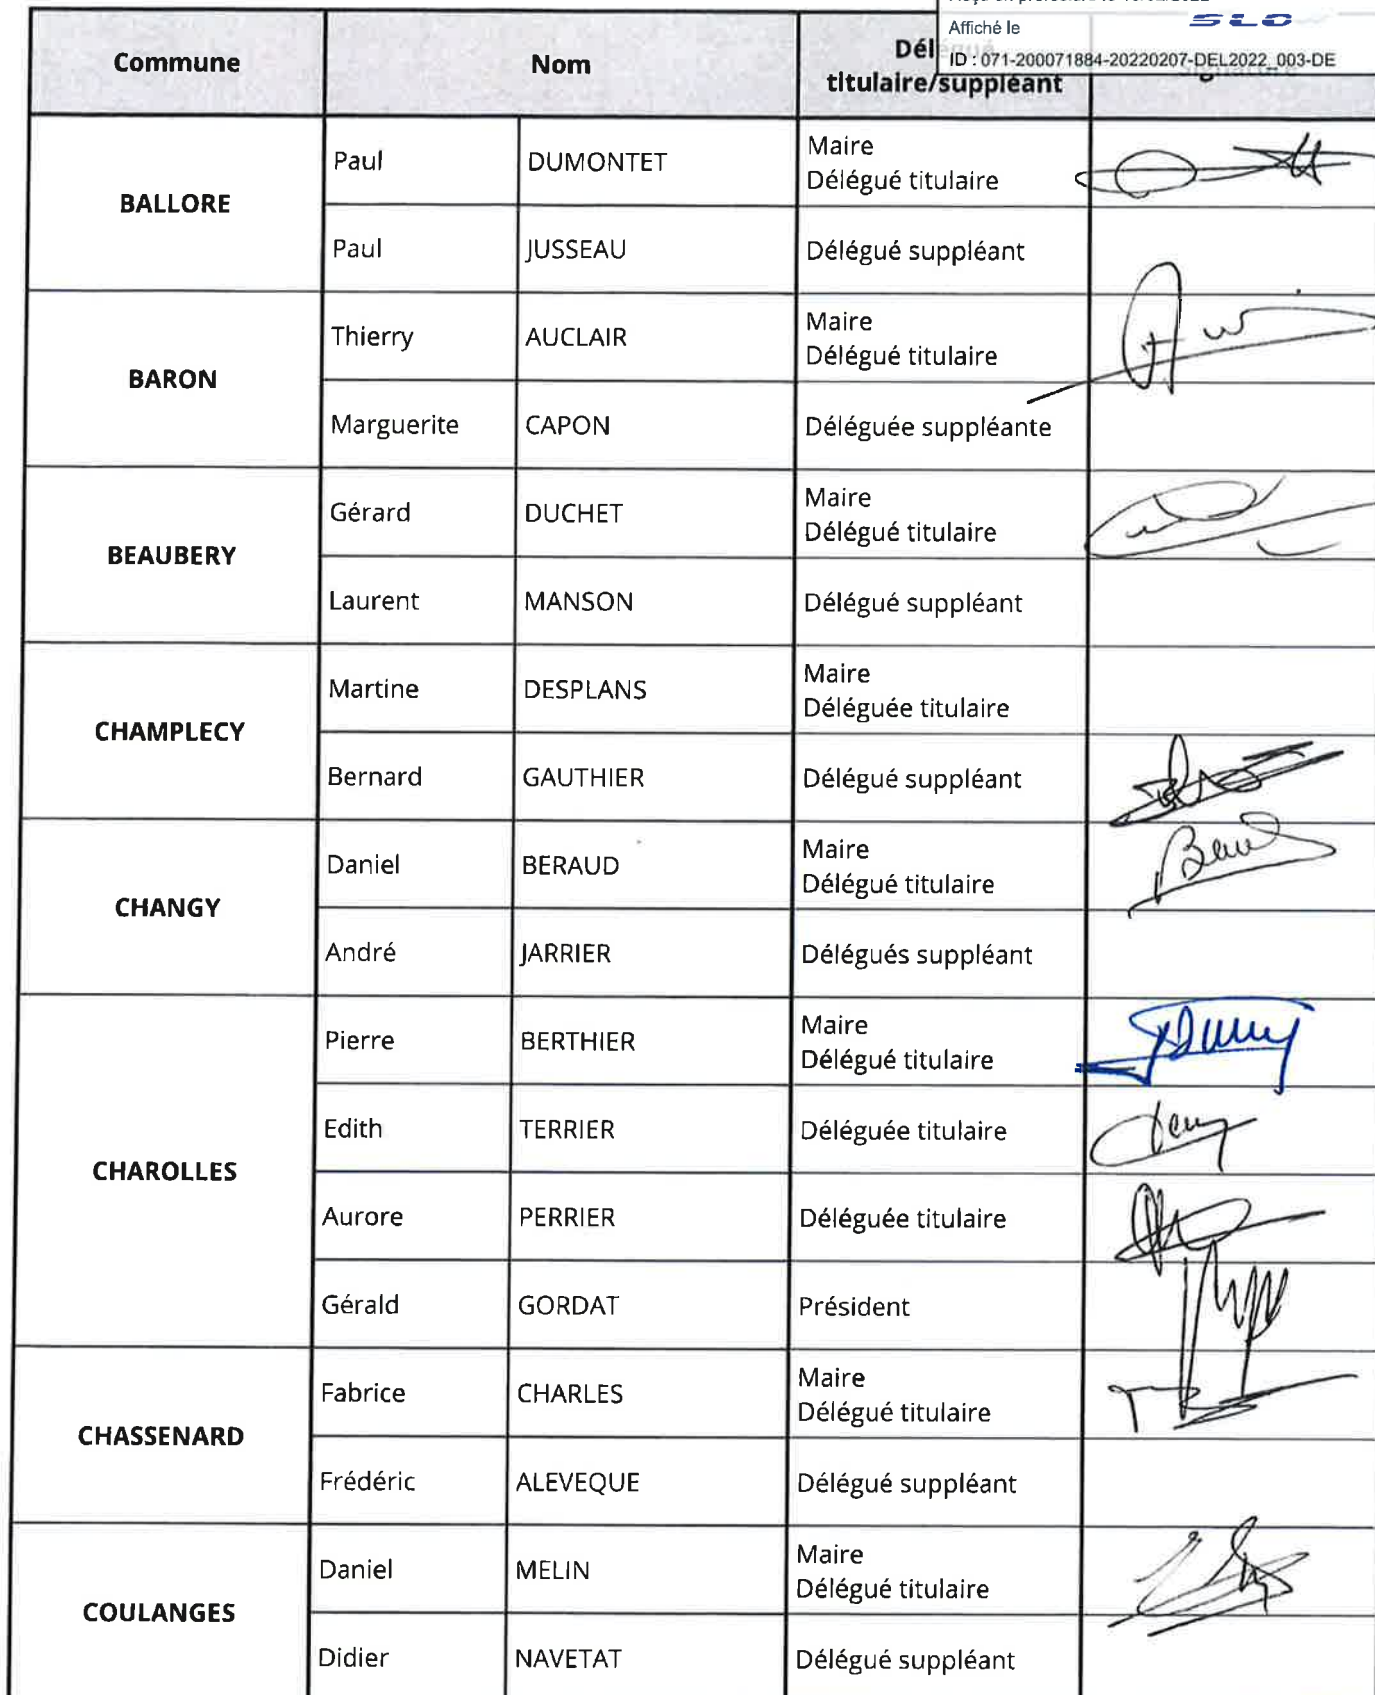 Affiché le
SLO
ID : 071-200071884-20220207-DEL2022_003-DE
Commune Nom titulaire/suppléant
BALLORE
Paul DUMONTET Maire
Délégué titulaire
Paul JUSSEAU Délégué suppléant
BARON
Thierry AUCLAIR Maire
Délégué titulaire
Marguerite CAPON Déléguée suppléante
BEAUBERY
Gérard DUCHET Maire
Délégué titulaire
Laurent MANSON Délégué suppléant
CHAMPLECY
Martine DESPLANS Maire
Déléguée titulaire
Bernard GAUTHIER Délégué suppléant
CHANGY
Daniel BERAUD Maire
Délégué titulaire
André JARRIER Délégués suppléant
CHAROLLES
Pierre BERTHIER Maire
Délégué titulaire
Edith TERRIER Déléguée titulaire
Aurore PERRIER Déléguée titulaire
Gérald GORDAT Président
CHASSENARD
Fabrice CHARLES Maire
Délégué titulaire
Frédéric ALEVEQUE Délégué suppléant
COULANGES
Daniel MELIN Maire
Délégué titulaire
Didier NAVETAT Délégué suppléant